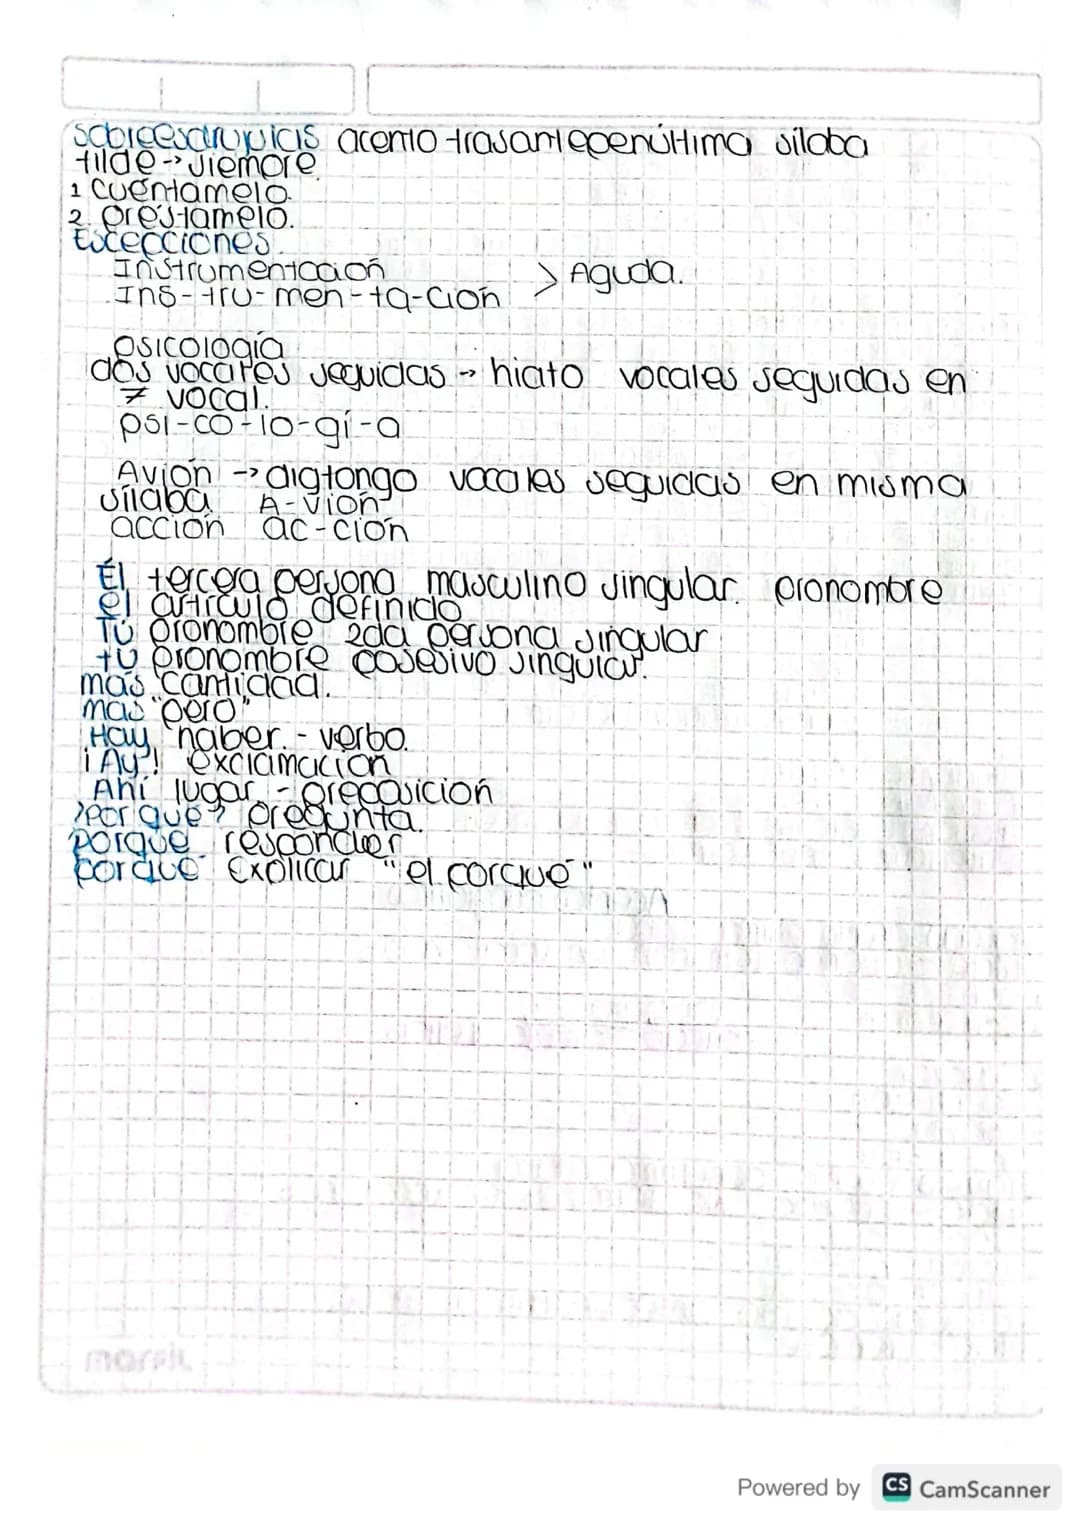 Sobreesdrújulas acento trasantepenúltima sílaba
tilde -> siempre
1 Cuéntamelo.
2. préstamelo.
Excepciones
Instrumentación
Ins-tru-men-ta-ción > Aguda.
psicología
dos vocales seguidas -> hiato vocales seguidas en
≠ vocal.
psi-co-lo-gí-a
Avión -> digtongo vocales seguidas en misma
sílaba A-vión
acción ac-ción
Él tercera persona masculino singular. pronombre
el artículo definido
Tú pronombre 2da persona singular
tu pronombre posesivo singular.
más cantidad.
mas "pero"
Hay haber. - verbo.
¡Ay! exclamación
Ahí lugar - preposición
¿Por qué? pregunta.
porque responder
porqué Explicar "el porqué"
marfil
Powered by CS CamScanner